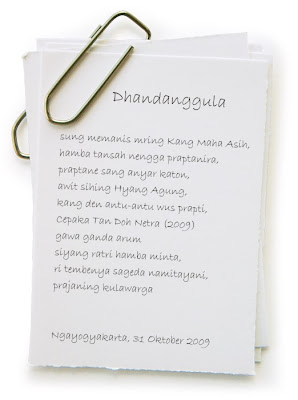 Dhandanggula
sung memanis mring Kang Maha Asih,
hamba tansah nengga praptanira,
praptane sang anyar katon,
awit sihing Hyang Agung,
kang den antu-antu wus prapti,
Cepaka Tan Doh Netra (2009)
gawa ganda arum
siyang ratri hamba minta,
ri tembenya sageda namitayani,
prajaning kulawarga
Ngayogyakarta, 31 Oktober 2009